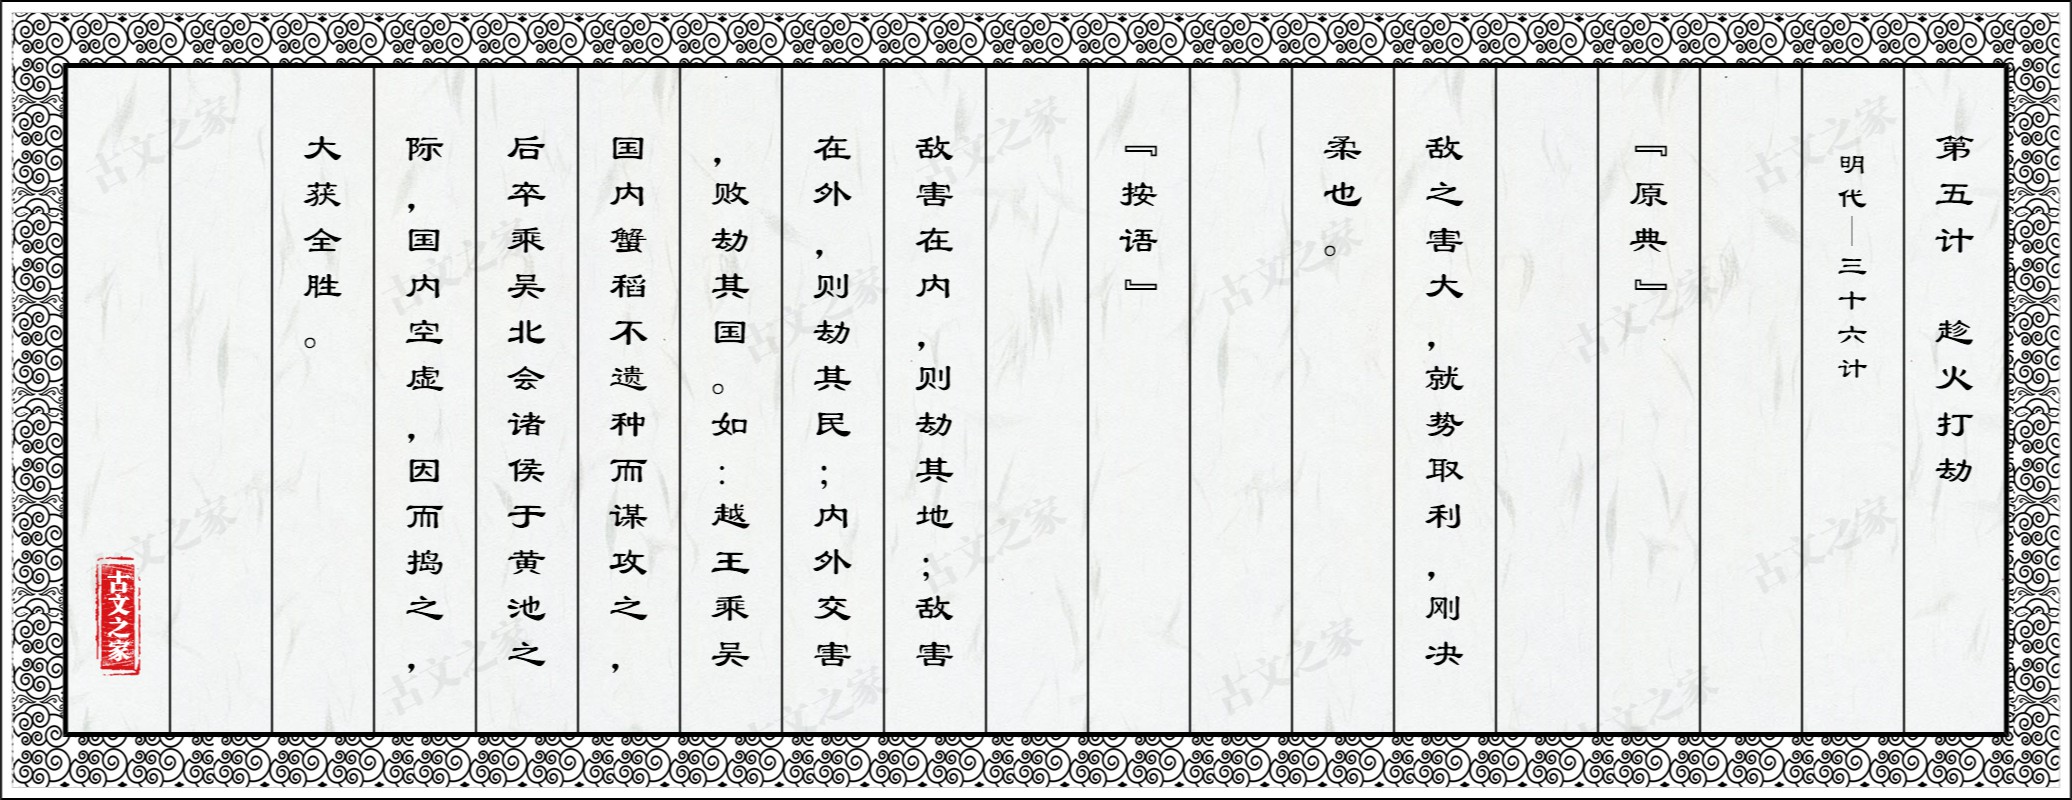 第五计 趁火打劫
明代——三十六计
『原典』
敌之害大，就势取利，刚决
柔也。
『按语』
敌害在内，则劫其地；敌害
在外，则劫其民；内外交害
，败劫其国。如：越王乘吴
国内蟹稻不遗种而谋攻之，
后卒乘吴北会诸侯于黄池之
际，国内空虚，因而捣之，
大获全胜。
古文之家